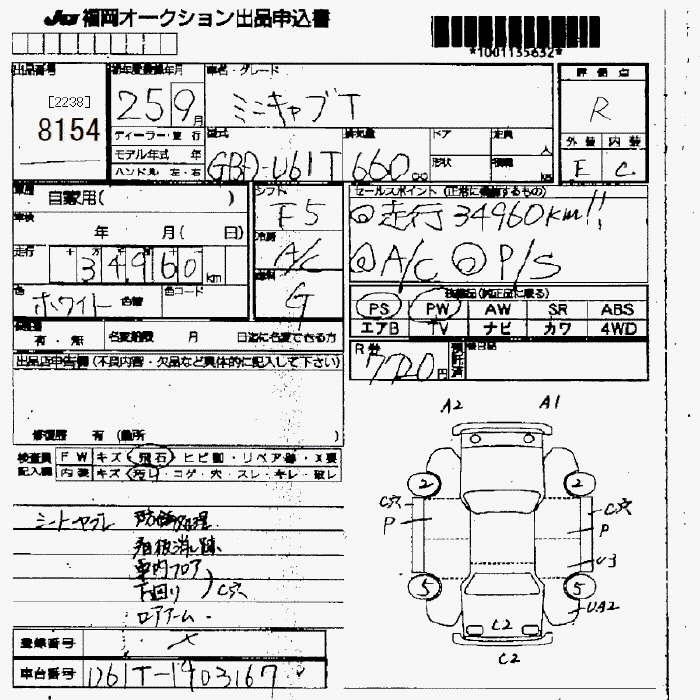 JU 福岡オークション出品申込書
*1001135632*
出品番号
[2238]
8154
初年度登録年月
25 9月
ディーラー・並行
モデル年式 年
ハンドル 左・右
車名・グレード
ミニキャブT
型式
GBD-U61T
排気量
660cc
ドア
形状
定員
人
積載
kg
評価点
R
外装 内装
E C
車歴
自家用( )
車検
年 月( 日)
走行
34960km
色
ホワイト 色替
色コード
シフト
F5
冷房
A/C
燃料
G
セールスポイント(正常に機能するもの)
◎走行34960km!!
◎A/C ◎P/S
装備品(純正品に限る)
PS PW AW SR ABS
エアB TV ナビ カワ 4WD
有・無
名変期限 月 日迄に名変できる方
R券
7720円
預託済
出品店申告欄(不良内容・欠品など具体的に記入して下さい)
修復歴 有 (箇所 )
検査員記入欄
FW キズ・飛石・ヒビ割・リペア跡・X要
内装 キズ・汚レ・コゲ・穴・スレ・キレ・破レ
シートヤブレ 防錆処理
看板消し跡
車内フロア
下回り
C穴
ロアアーム
登録番号
車台番号 U61T-1403167
A2 A1
2 2
C穴 C穴
P P
U3
5 5
UA2
C2
C2